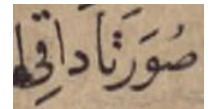 صُوَرَتَادَاقِي